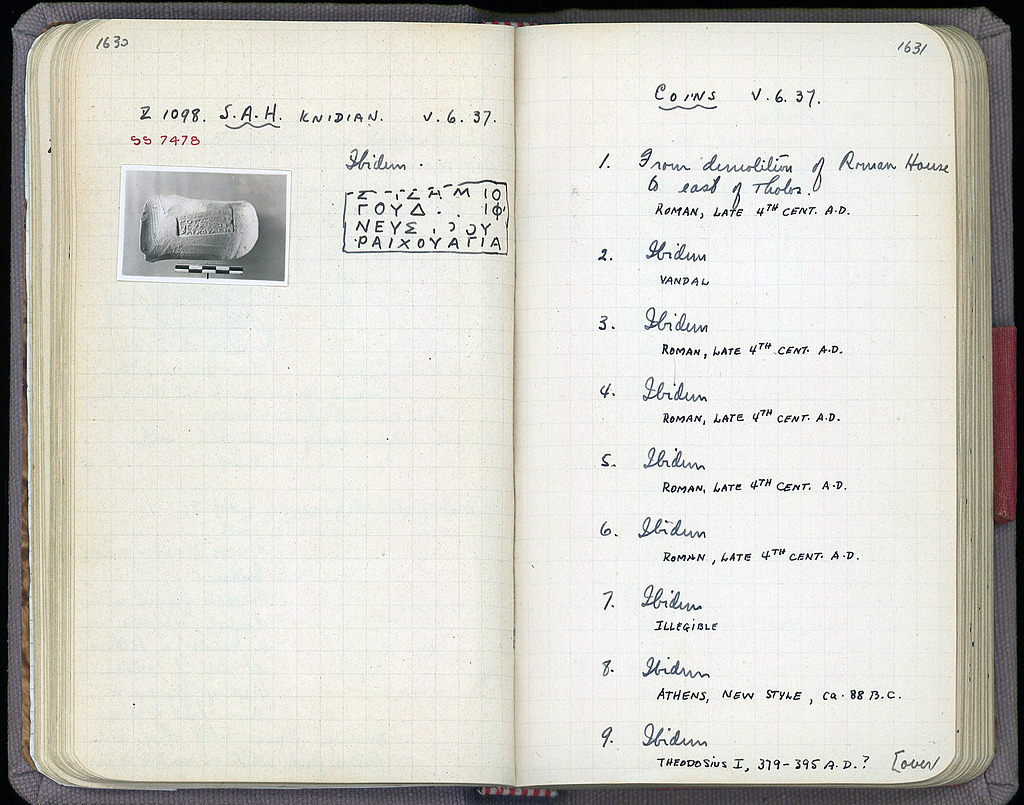 1630
Z 1098. S.A.H. KNIDIAN. V.6.37.
SS 7478
Ibidem.
ΓΟΥΔ . . ΙΦ
ΝΕΥΣ
ΡΑΙΧΟΥΑΓΙΑ
1631
COINS V.6.37.
1. From demolition of Roman House
to east of Tholos.
ROMAN, LATE 4TH CENT. A.D.
2. Ibidem
VANDAL
3. Ibidem
ROMAN, LATE 4TH CENT. A.D.
4. Ibidem
ROMAN, LATE 4TH CENT. A.D.
5. Ibidem
ROMAN, LATE 4TH CENT. A.D.
6. Ibidem
ROMAN, LATE 4TH CENT. A.D.
7. Ibidem
ILLEGIBLE
8. Ibidem
ATHENS, NEW STYLE, ca. 88 B.C.
9. Ibidem
THEODOSIUS I, 379-395 A.D.? [over